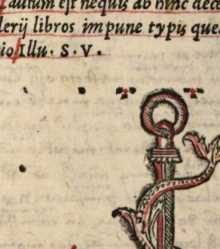 autum est nequis ab hinc dece
lerij libros impune typis que
io Illu. S. V.